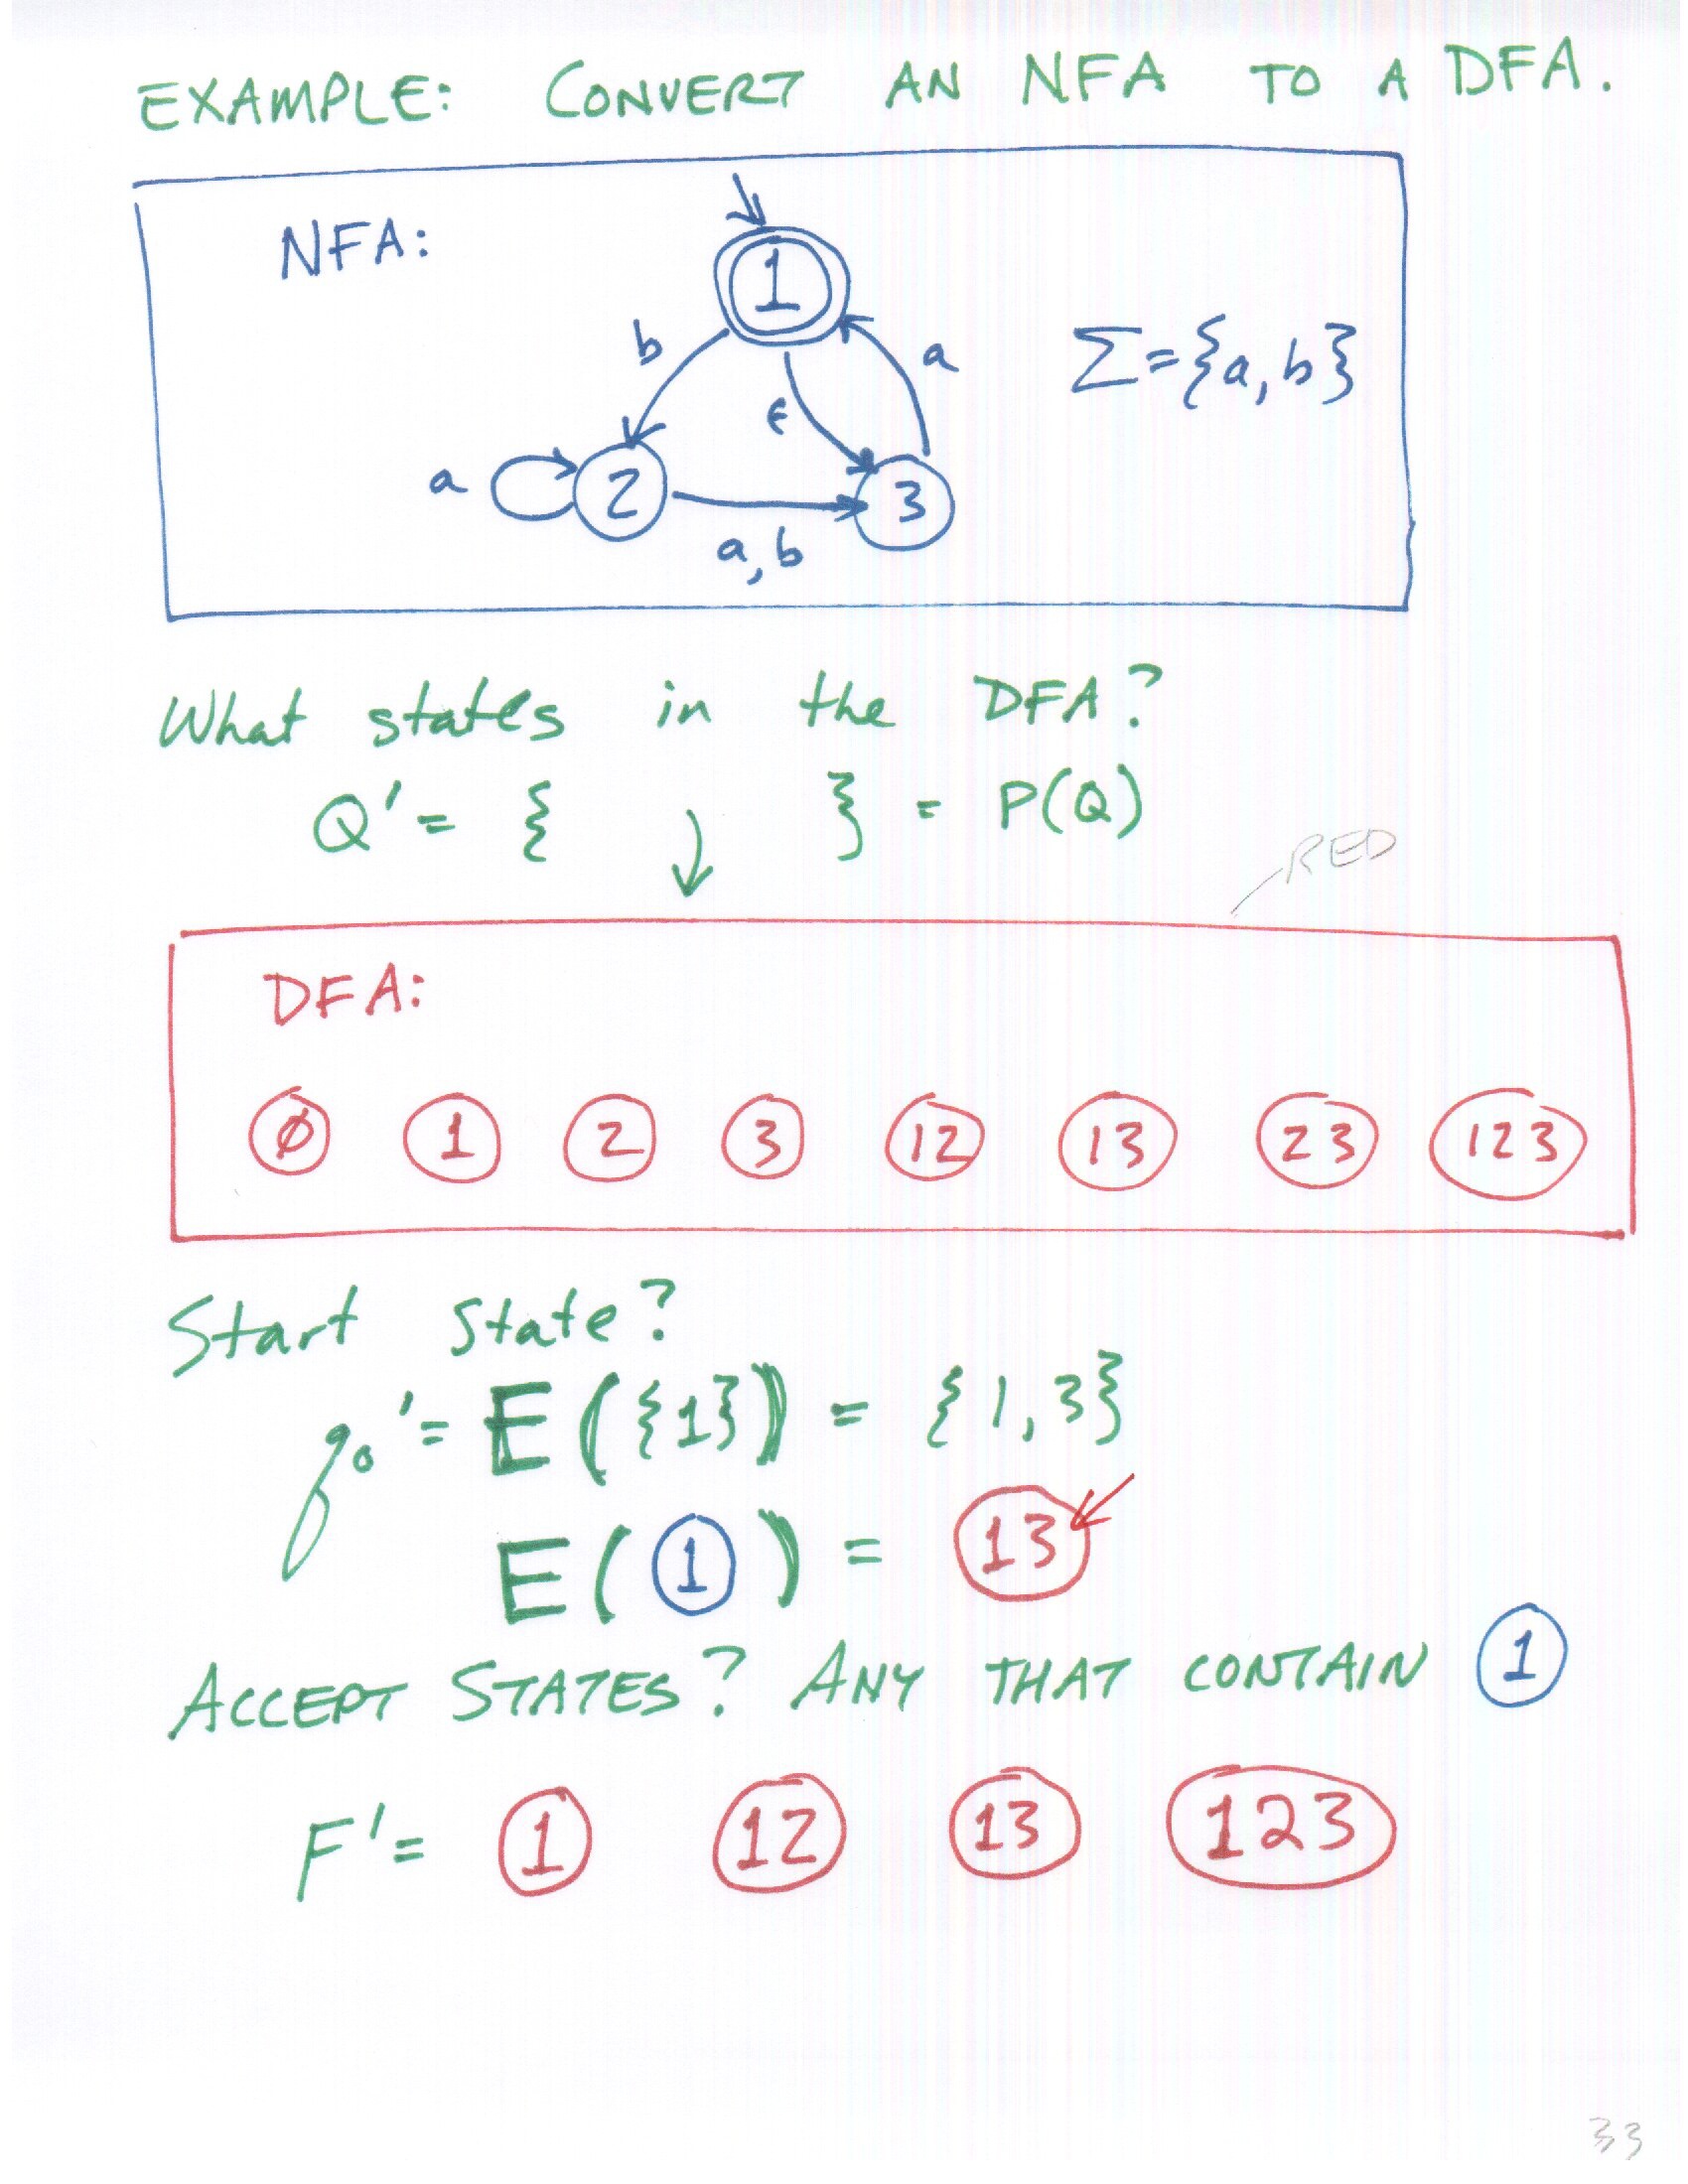 EXAMPLE: CONVERT AN NFA TO A DFA.
NFA:
1
b
ϵ
a
Σ={a,b}
a
2
3
a,b
What states in the DFA?
Q'= { } = P(Q)
RED
DFA:
∅ 1 2 3 12 13 23 123
Start state?
q₀'= E({1}) = {1,3}
E(1) = 13
ACCEPT STATES? ANY THAT CONTAIN 1
F'= 1 12 13 123
33